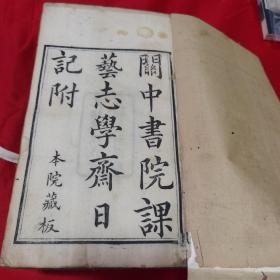 關中書院課
藝志學齋日
記附
本院藏板